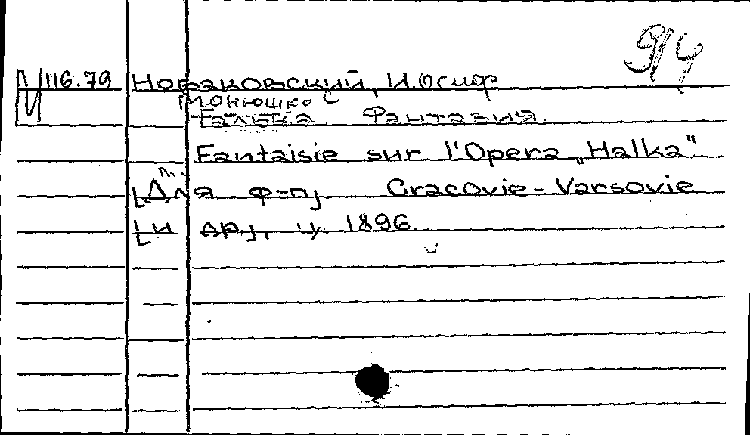 94
116.79 Новаковский, Иосиф
Монюшко С
Галька. Фантазия.
Fantaisie sur l'Opera „Halka"
[Для ф-п] Cracovie-Varsovie
[и др], ц. 1896.